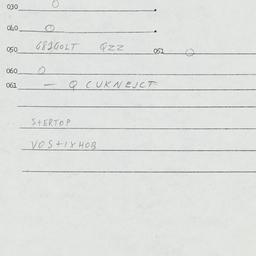 030 O
040 O
050 G82GOLT QZZ 051 O
060 O
061 — Q CUKNEJCT
StERTOP
VOStIYHOB